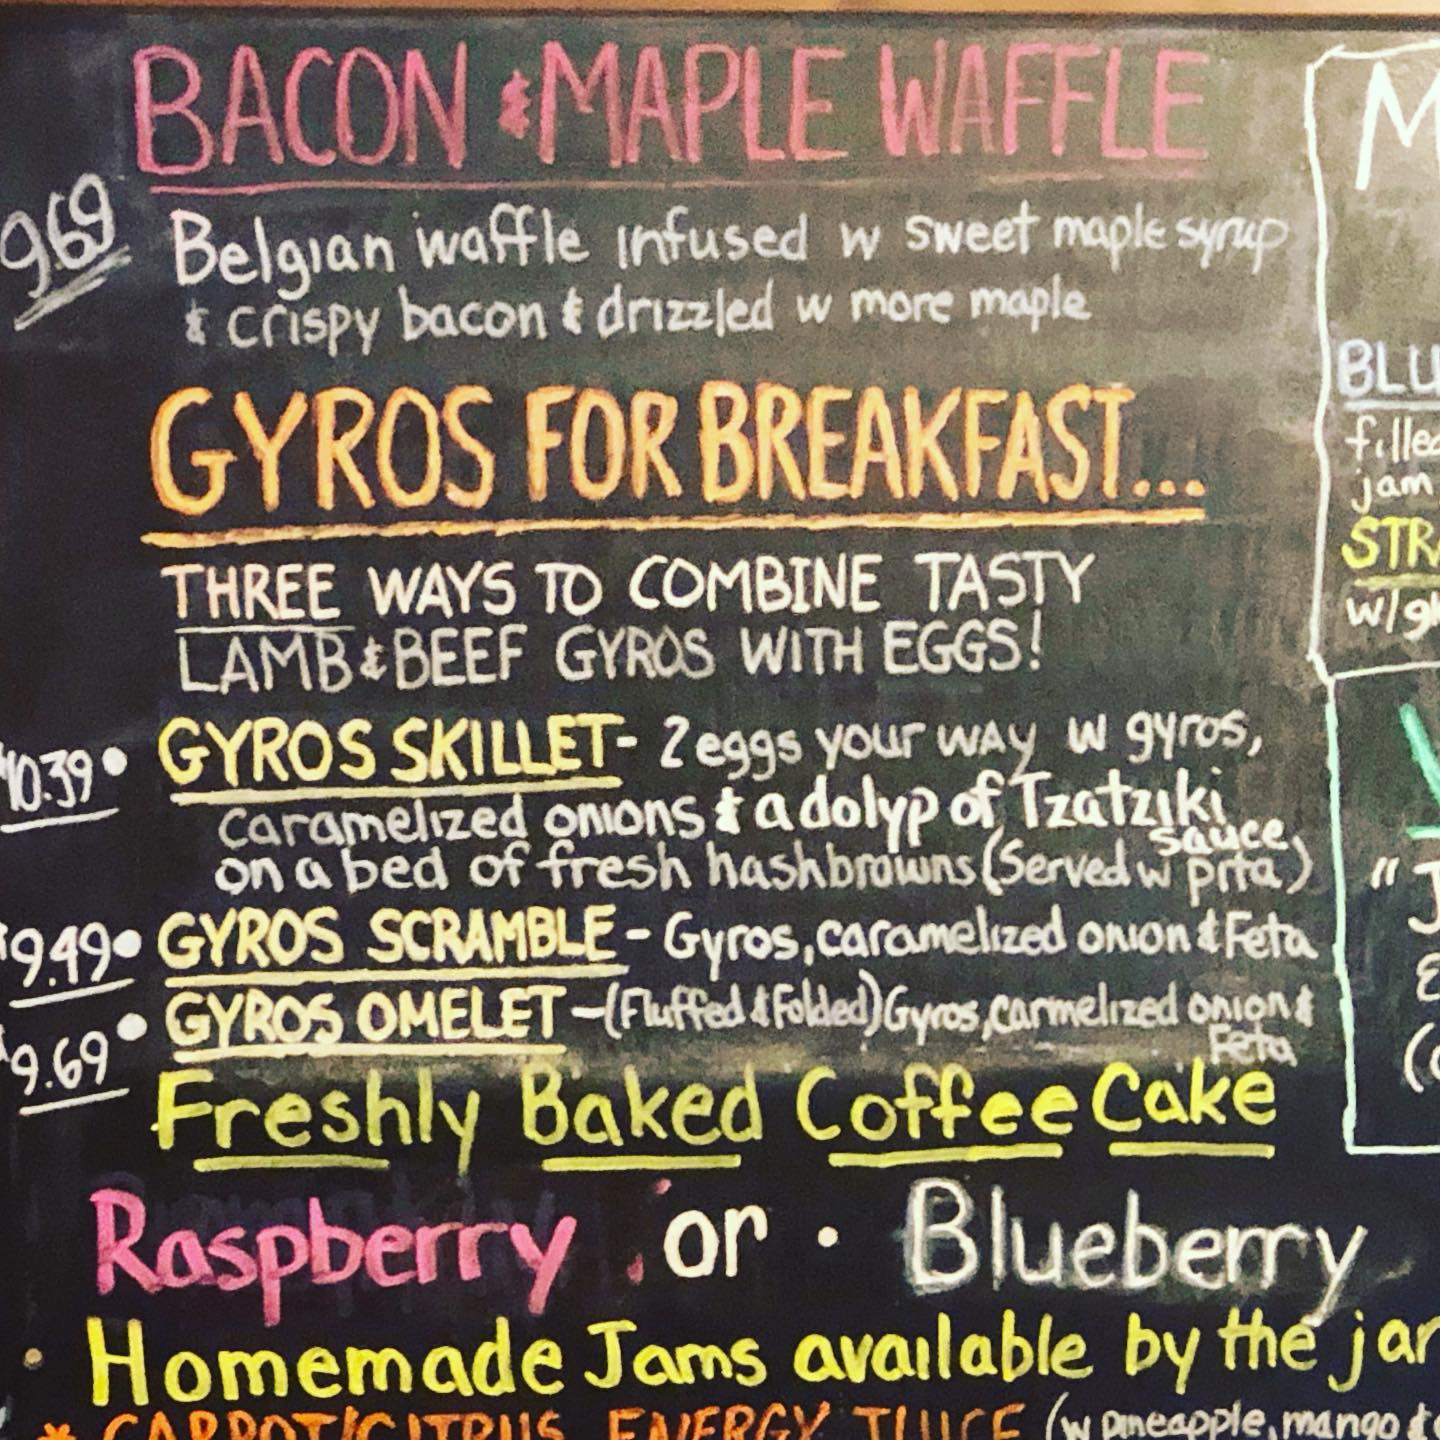 BACON & MAPLE WAFFLE
9.69
Belgian waffle infused w sweet maple syrup
& crispy bacon & drizzled w more maple
GYROS FOR BREAKFAST...
THREE WAYS TO COMBINE TASTY
LAMB & BEEF GYROS WITH EGGS!
$10.39 • GYROS SKILLET- 2 eggs your way w gyros,
caramelized onions & a dolyp of Tzatziki
sauce,
on a bed of fresh hashbrowns (Served w pita)
$9.49 • GYROS SCRAMBLE - Gyros, caramelized onion & Feta
$9.69 • GYROS OMELET - (Fluffed & Folded) Gyros, carmelized onion &
Feta
Freshly Baked Coffee Cake
Raspberry • or • Blueberry
• Homemade Jams available by the jar
* CARROT/CITRUS ENERGY JUICE (w pineapple, mango &
M
BLU
filled
jam
STRA
w/gl
"J
E